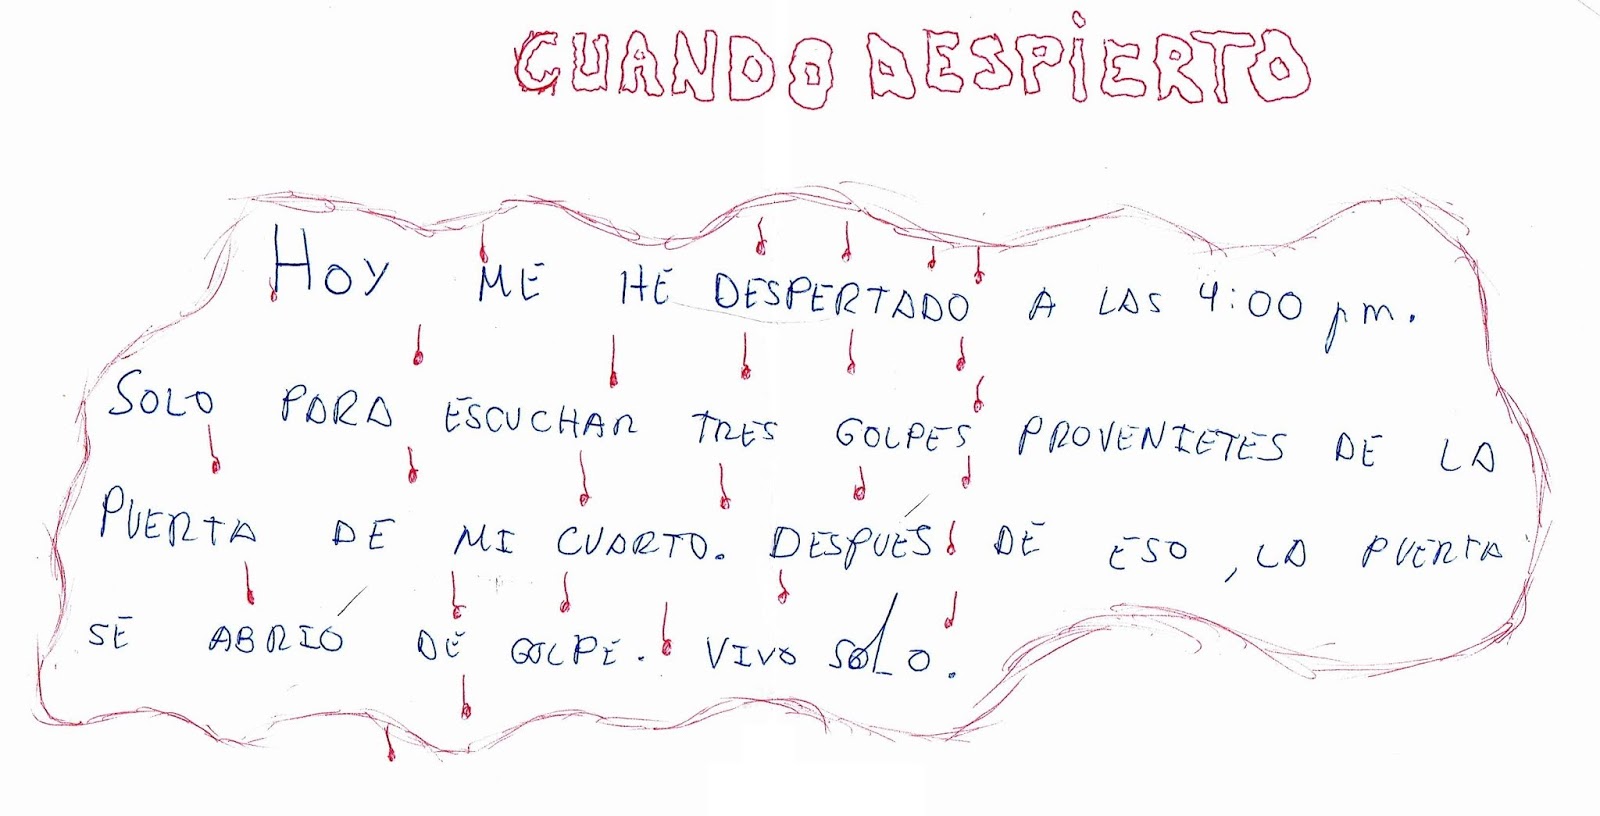 CUANDO DESPIERTO
HOY ME HE DESPERTADO A LAS 4:00 pm.
SOLO PARA ESCUCHAR TRES GOLPES PROVENIETES DE LA
PUERTA DE MI CUARTO. DESPUÉS DE ESO, LA PUERTA
SE ABRIÓ DE GOLPE. VIVO SOLO.